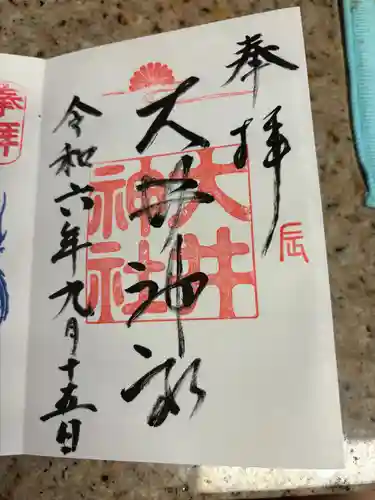 奉拝
辰
大井神社
大井神社
令和六年九月十五日
奉拝